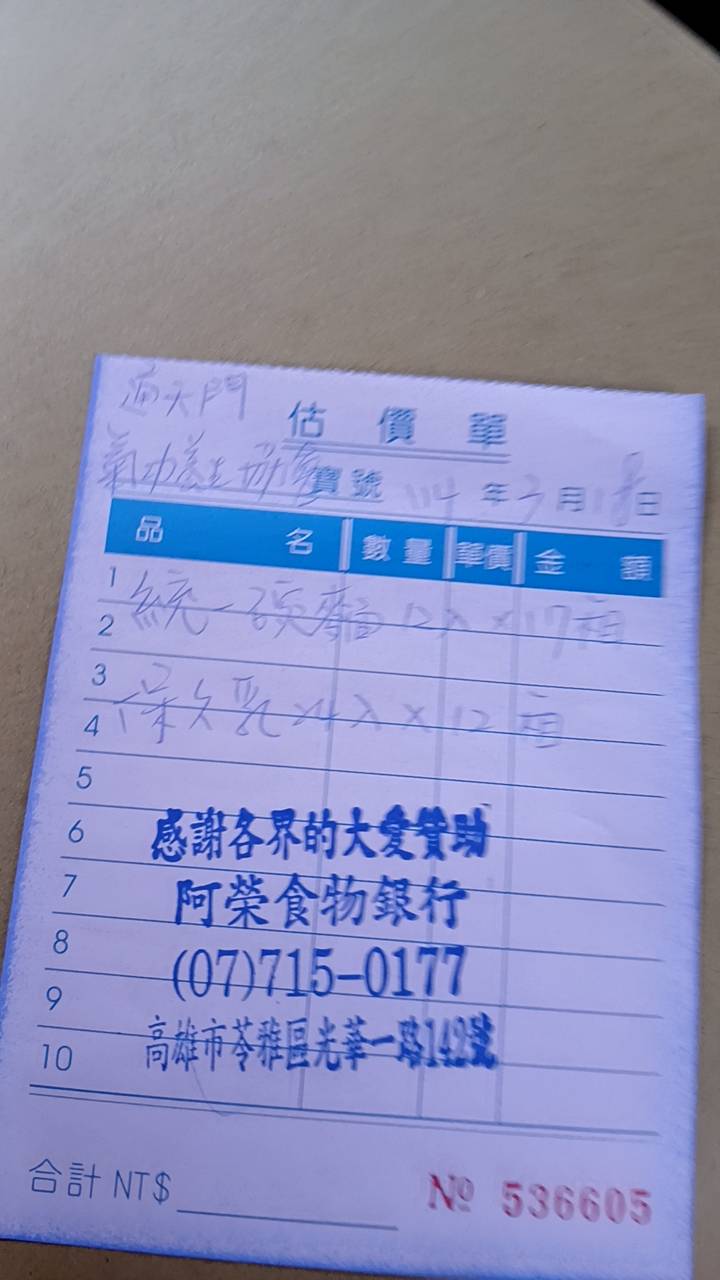 通天門
估價單
氣功養生協會寶號 114年3月18日
品名 數量 單價 金額
1
統一碗麵 12入 × 17箱
2
3
保久乳 24入 × 12箱
4
5
6
感謝各界的大愛贊助
7
阿榮食物銀行
8
(07)715-0177
9
10
高雄市苓雅區光華一路142號
合計 NT$
№ 536605